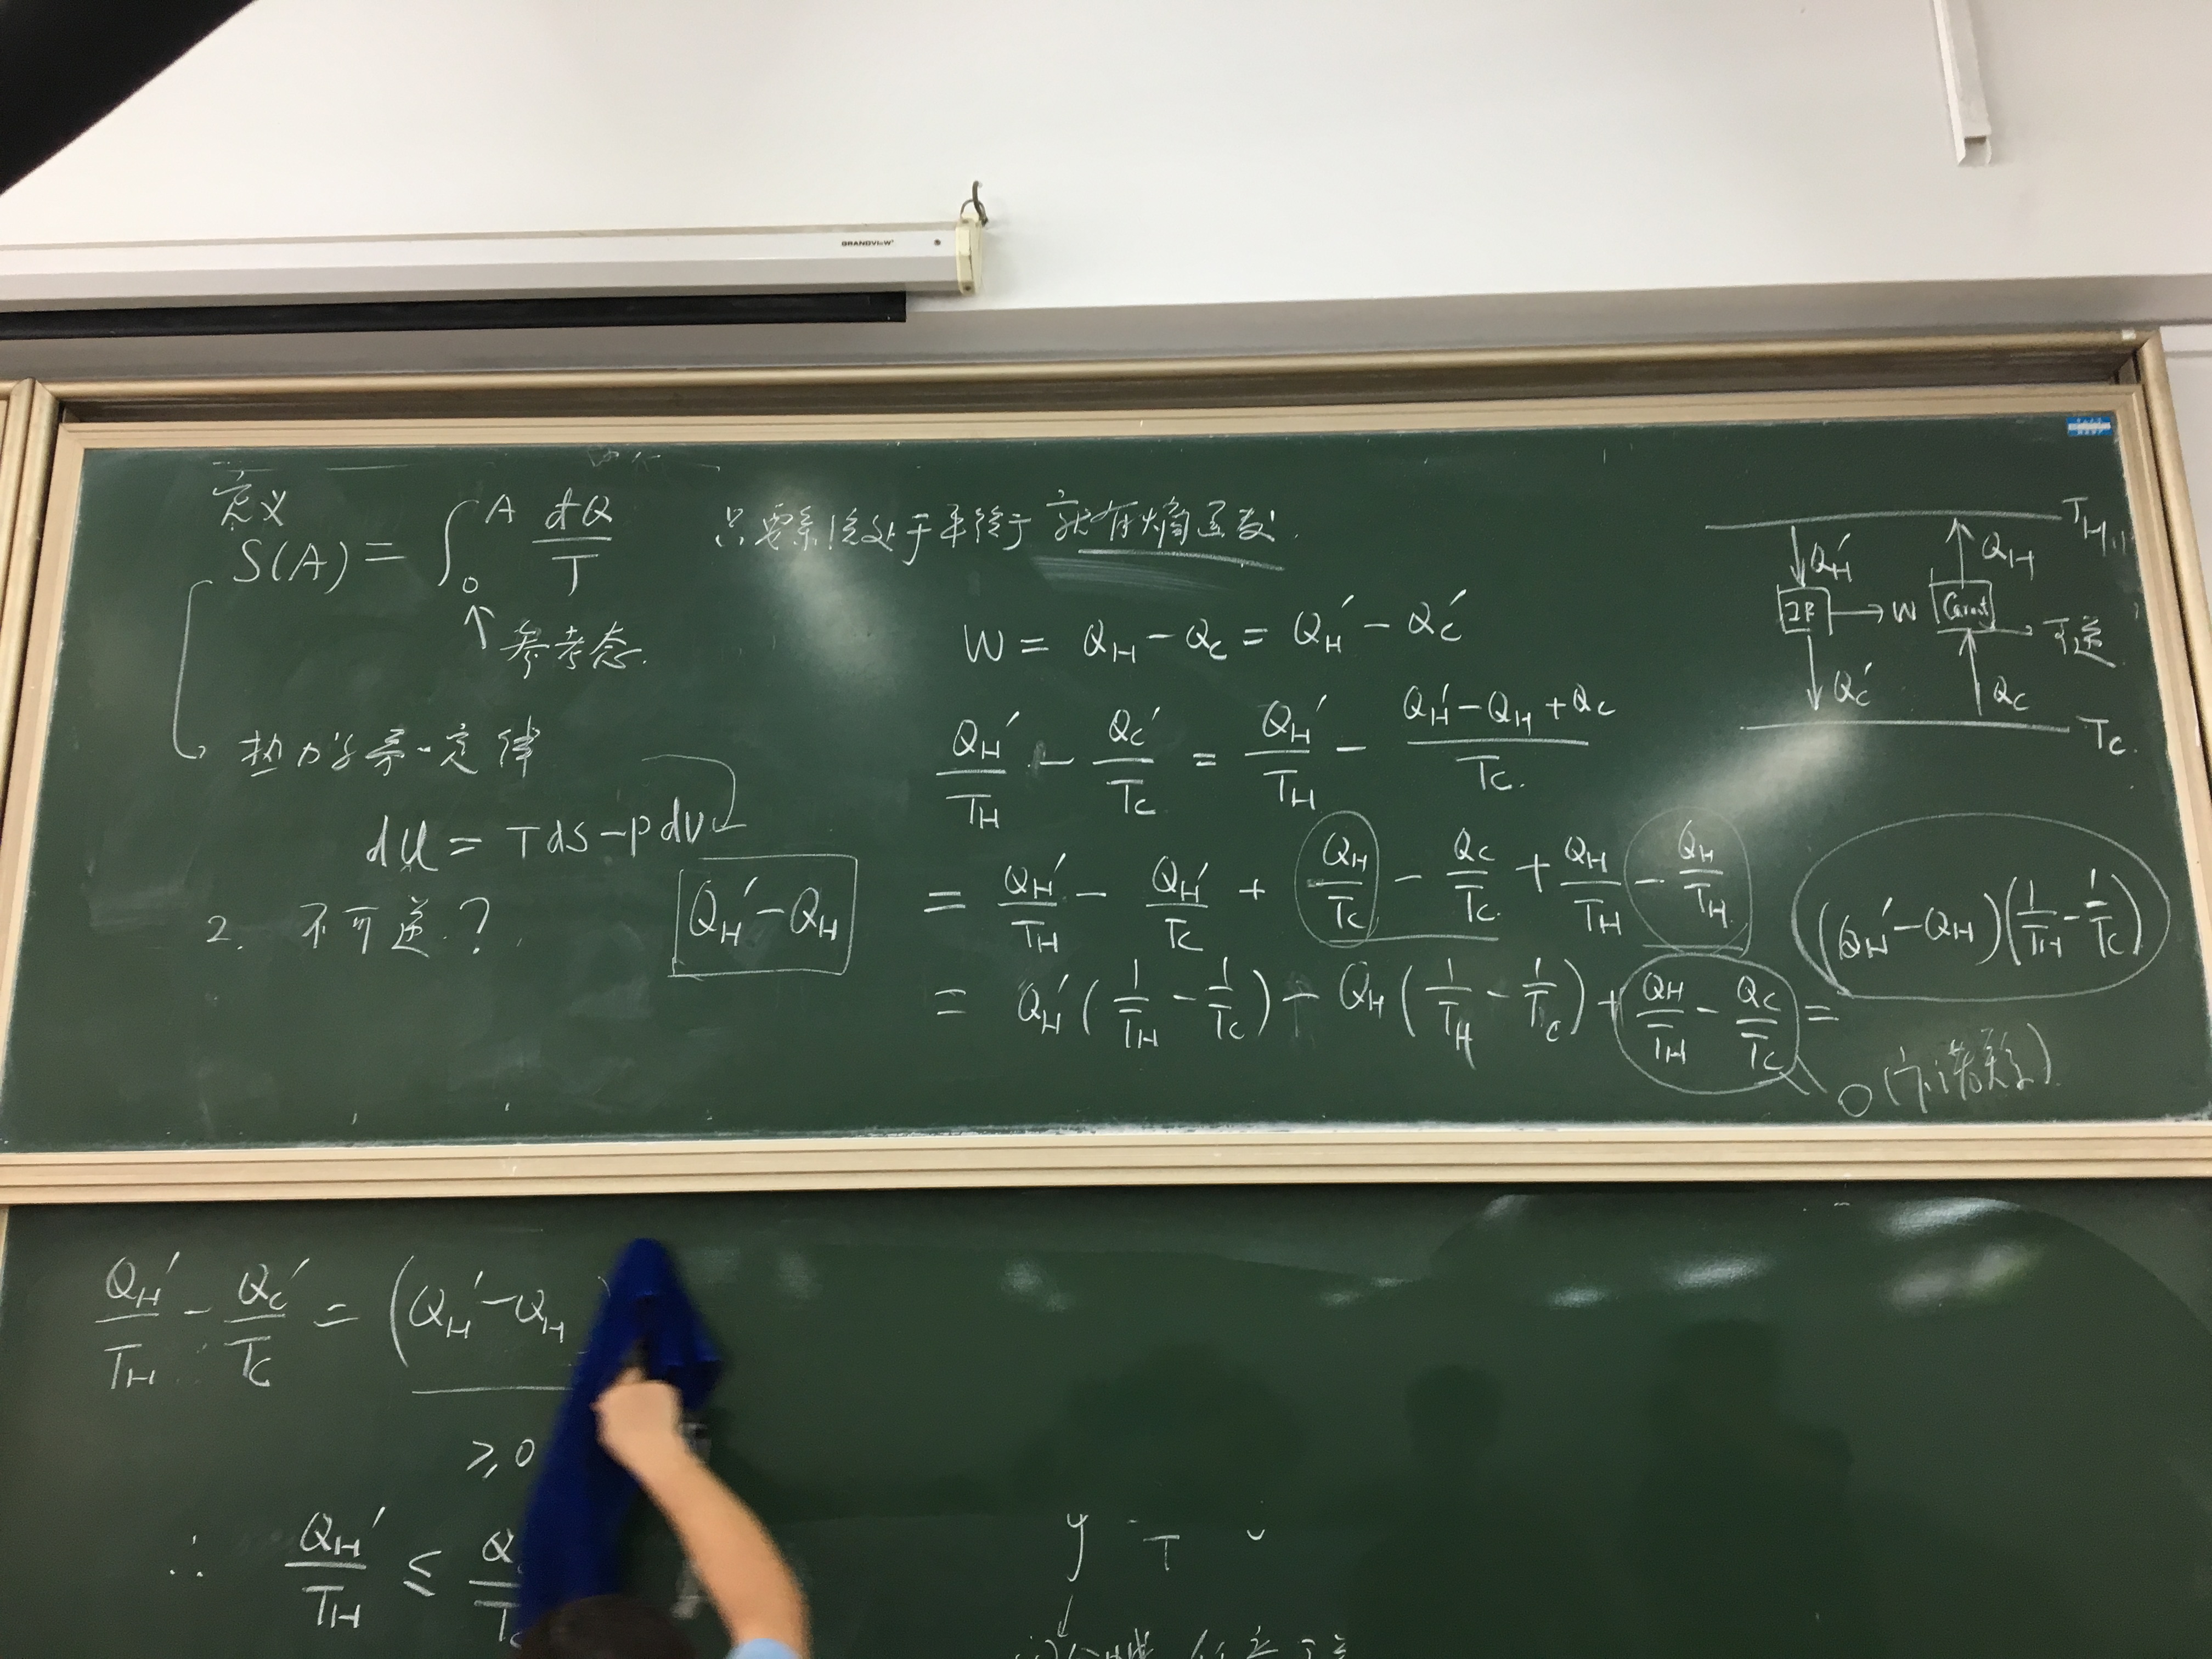 GRANDVIEW
定义
S(A) = ∫₀ᴬ đQ/T
↑
参考态.
只要系统处于平衡于 就有熵函数.
热力学第一定律
dU = TdS - pdV
2. 不可逆?
Q_H' - Q_H
W = Q_H - Q_C = Q_H' - Q_C'
Q_H'/T_H - Q_C'/T_C = Q_H'/T_H - (Q_H' - Q_H + Q_C)/T_C.
= Q_H'/T_H - Q_H'/T_C + Q_H/T_C - Q_C/T_C + Q_H/T_H - Q_H/T_H
= Q_H'(1/T_H - 1/T_C) - Q_H(1/T_H - 1/T_C) + Q_H/T_H - Q_C/T_C =
(Q_H' - Q_H)(1/T_H - 1/T_C)
0
T_H
Q_H' Q_H
→ W Carnot → 可逆
Q_C' Q_C
T_C.
Q_H'/T_H - Q_C'/T_C = (Q_H' - Q_H
≥ 0
∴ Q_H'/T_H ≤ Q
T